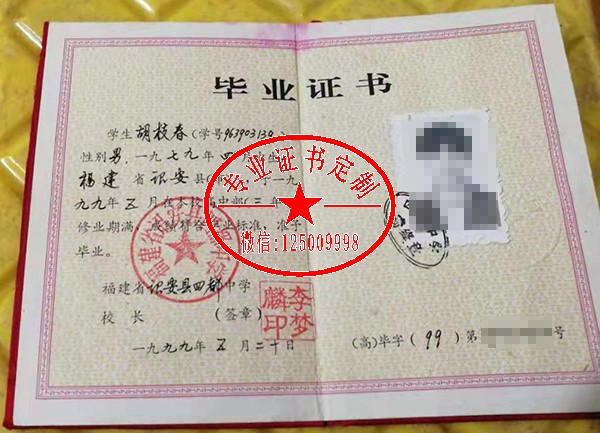 毕业证书
学生胡枝春(学号963903130
性别男,一九七九年四月
福建省诏安县(
九九年五月在本校高中部(三年
修业期满,成绩符合毕业标准,准予
毕业。
专业证书定制
微信:125009998
福建省诏安县四都中学
校 长 (签章)
李梦麟印
一九九九年五月二十日
(高)毕字(99)第 号